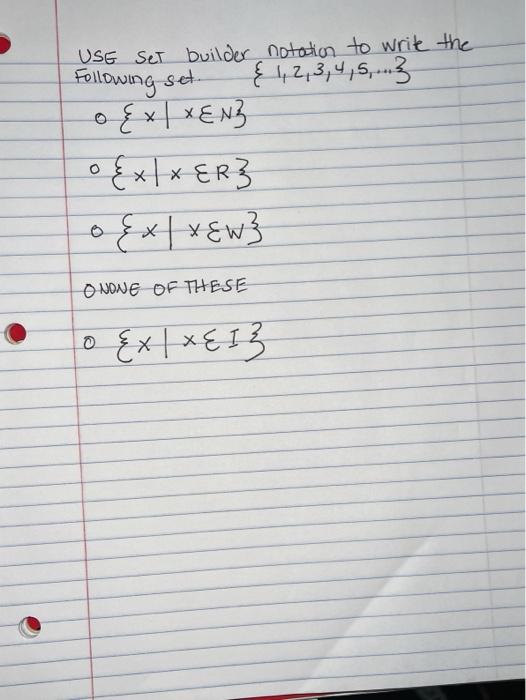 USE SET builder notation to write the
Following set. { 1,2,3,4,5,...}
○ {x| x∈N}
○ {x|x∈R}
○ {x| x∈W}
○ NONE OF THESE
○ {x| x∈I}